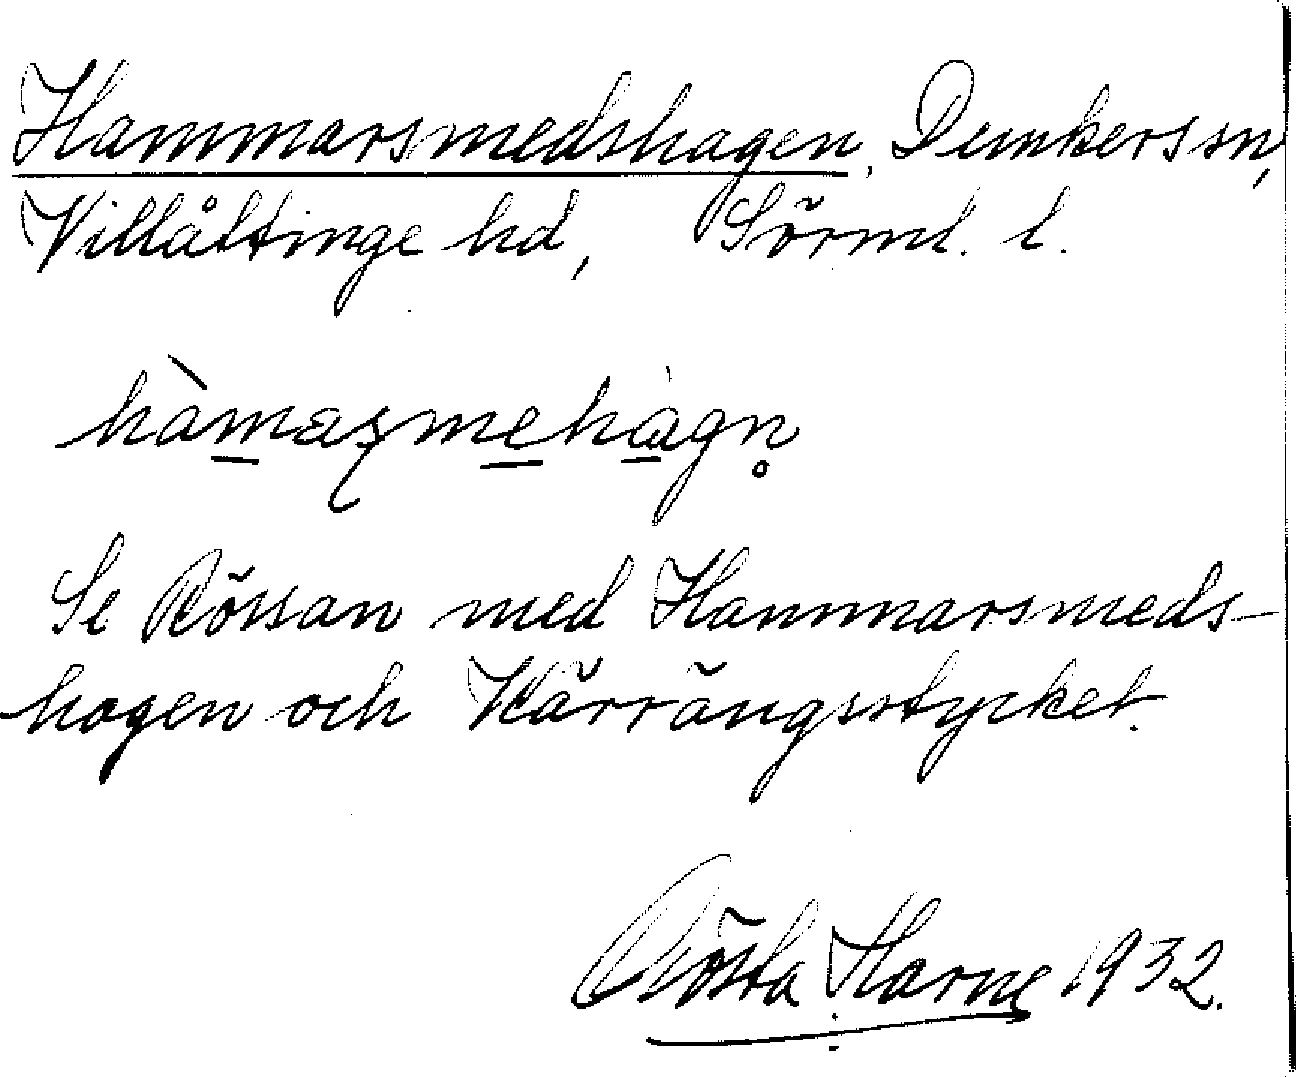 Hammarsmedshagen, Dunkers sn,
Villåttinge hd, Sörml. l.
hàmaʂmehàgn̥
Se Rössan med Hammarsmeds-
hagen och Kärrängsstycket.
Gösta Harne 1932.